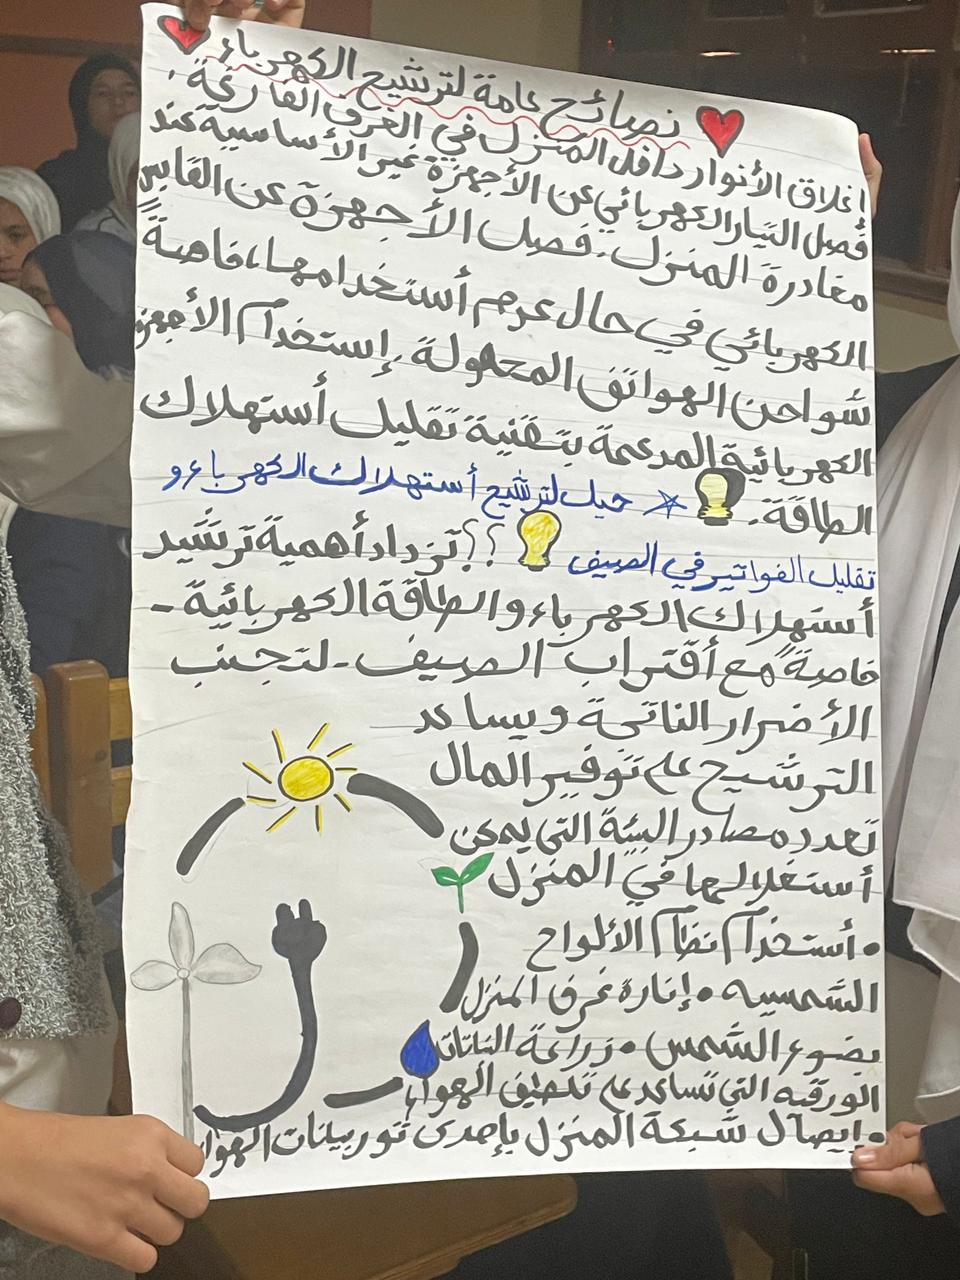 نصائح عامة لترشيح الكهرباء
إغلاق الأنوار داخل المنزل في الغرف الفارغة.
فصل التيار الكهربائي عن الأجهزة غير الأساسية عند
مغادرة المنزل. فصل الأجهزة عن القابس
الكهربائي في حال عدم أستخدامها، خاصةً
شواحن الهواتف المحمولة. إستخدام الأجهزة
الكهربائية المدعمة بتقنية تقليل أستهلاك
الطاقة.
حيل لترشيح أستهلاك الكهرباء و
تقليل الفواتير في الصيف
؟؟ تزداد أهمية ترشيد
أستهلاك الكهرباء والطاقة الكهربائية -
خاصةً مع أقتراب الصيف - لتجنب
الأضرار الناتجة ويساعد
الترشيح على توفير المال
تعدد مصادر البيئة التي يمكن
أستغلالها في المنزل
• أستخدام نظام الألواح
الشمسيه • إنارة غرف المنزل
بضوء الشمس • زراعة النباتات
الورقيه التي تساعد على تلطيف الهواء
• إيصال شبكة المنزل بإحدى توربينات الهواء